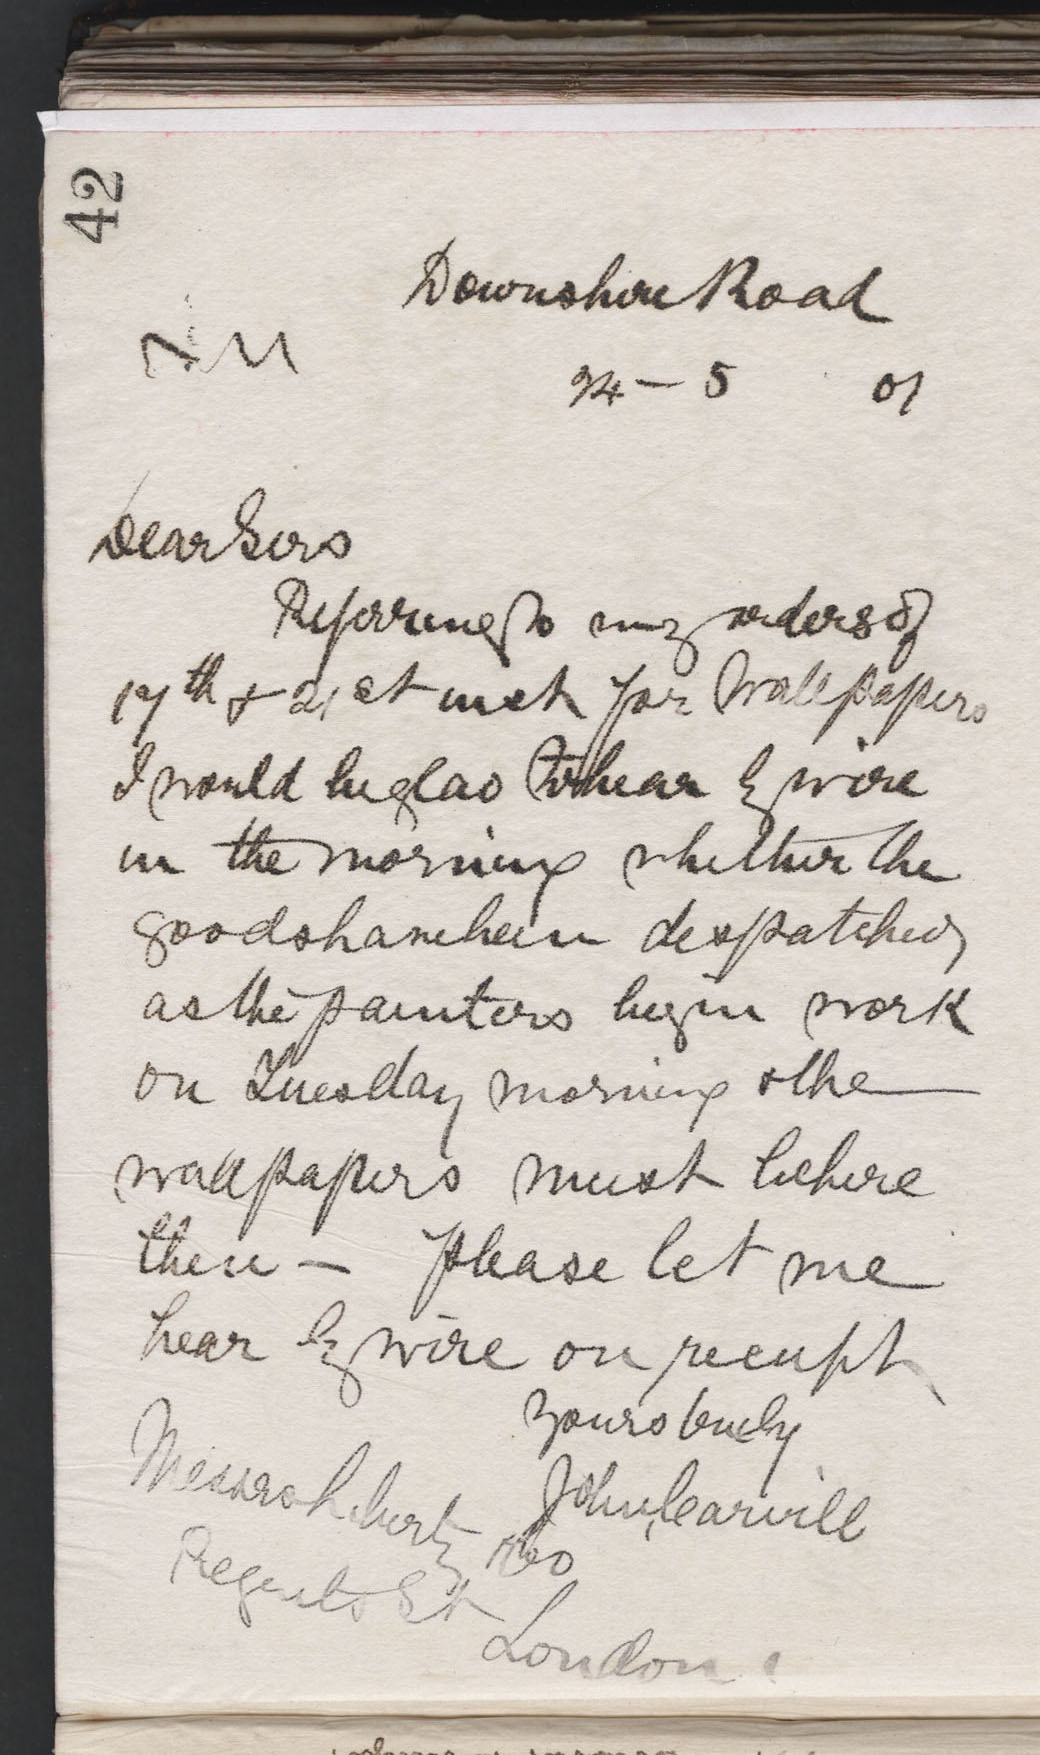 42
Downshire Road
24 - 5 01
Dear Sirs
Referring to my orders of
17th & 21st inst for Wallpapers
I would be glad to hear by wire
in the morning whether the
goods have been despatched,
as the painters begin work
on Tuesday morning & the
wallpapers must be here
then — please let me
hear by wire on receipt
Yours truly
John Carvill
Messrs Liberty & Co
Regents St
London.